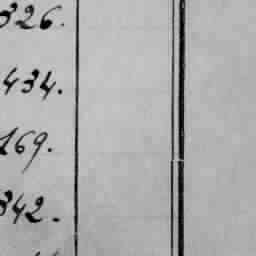 326.
434.
169.
342.